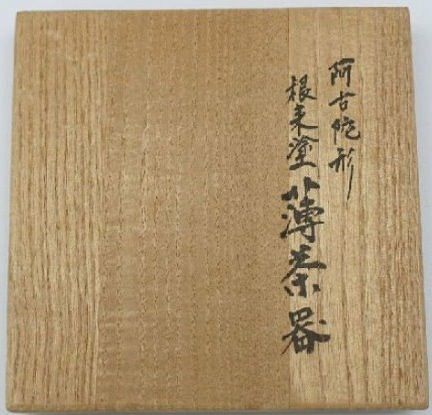 阿古陀形
根来塗
薄茶器